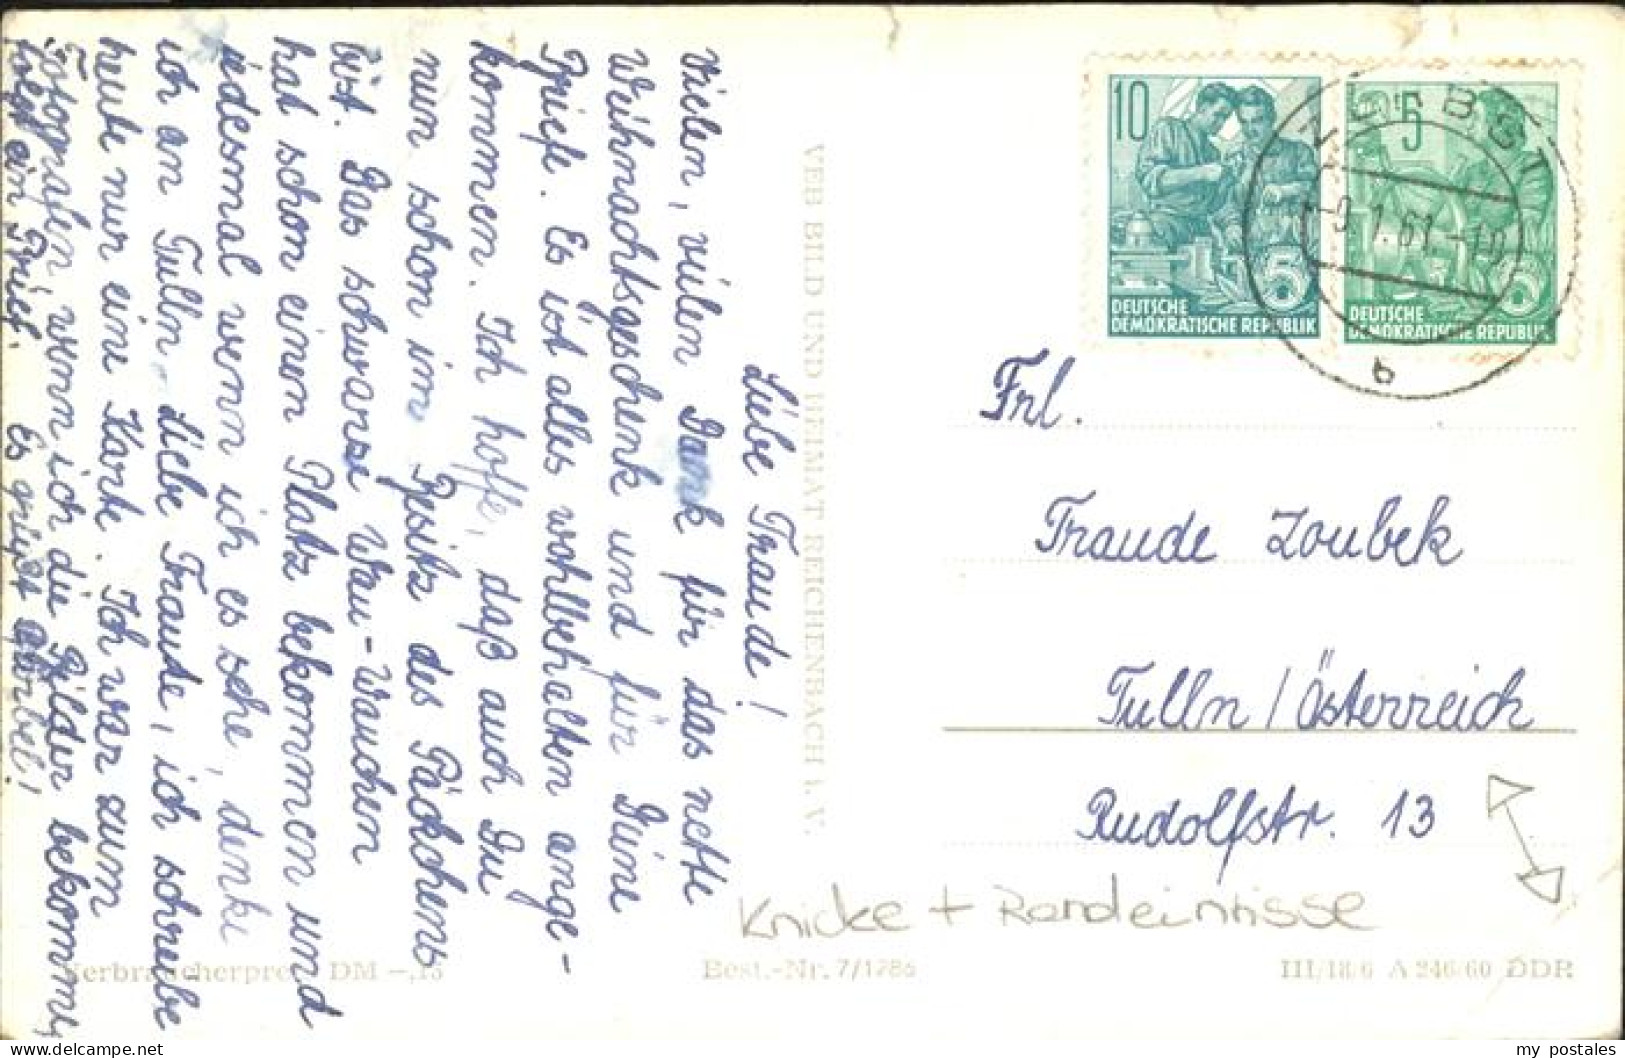 Liebe Traude!
vielen, vielen Dank für das nette
Weihnachtsgeschenk und für Deine
Briefe. Es ist alles wohlbehalten ange-
kommen. Ich hoffe, daß auch Du
nun schon im Besitz des Päckchens
bist. Das schwarze Wau-Wauchen
hat schon einen Platz bekommen und
jedesmal wenn ich es sehe, denke
ich an Tulln. Liebe Traude, ich schreibe
heute nur eine Karte. Ich war zum
Fotografen, wenn ich die Bilder bekomme,
folgt ein Brief. Es grüßt Bärbel!
VEB BILD UND HEIMAT REICHENBACH i. V.
10
5
DEUTSCHE
DEMOKRATISCHE REPUBLIK
5
5
DEUTSCHE
DEMOKRATISCHE REPUBLIK
ZERBST
-9.1.61.-10
b
Frl.
Traude Zoubek
Tulln / Österreich
Rudolfstr. 13
Knicke + Randeinrisse
Verbraucherpreis DM -,15
Best.-Nr. 7/1786
III/18/6 A 246/60 DDR
my postales